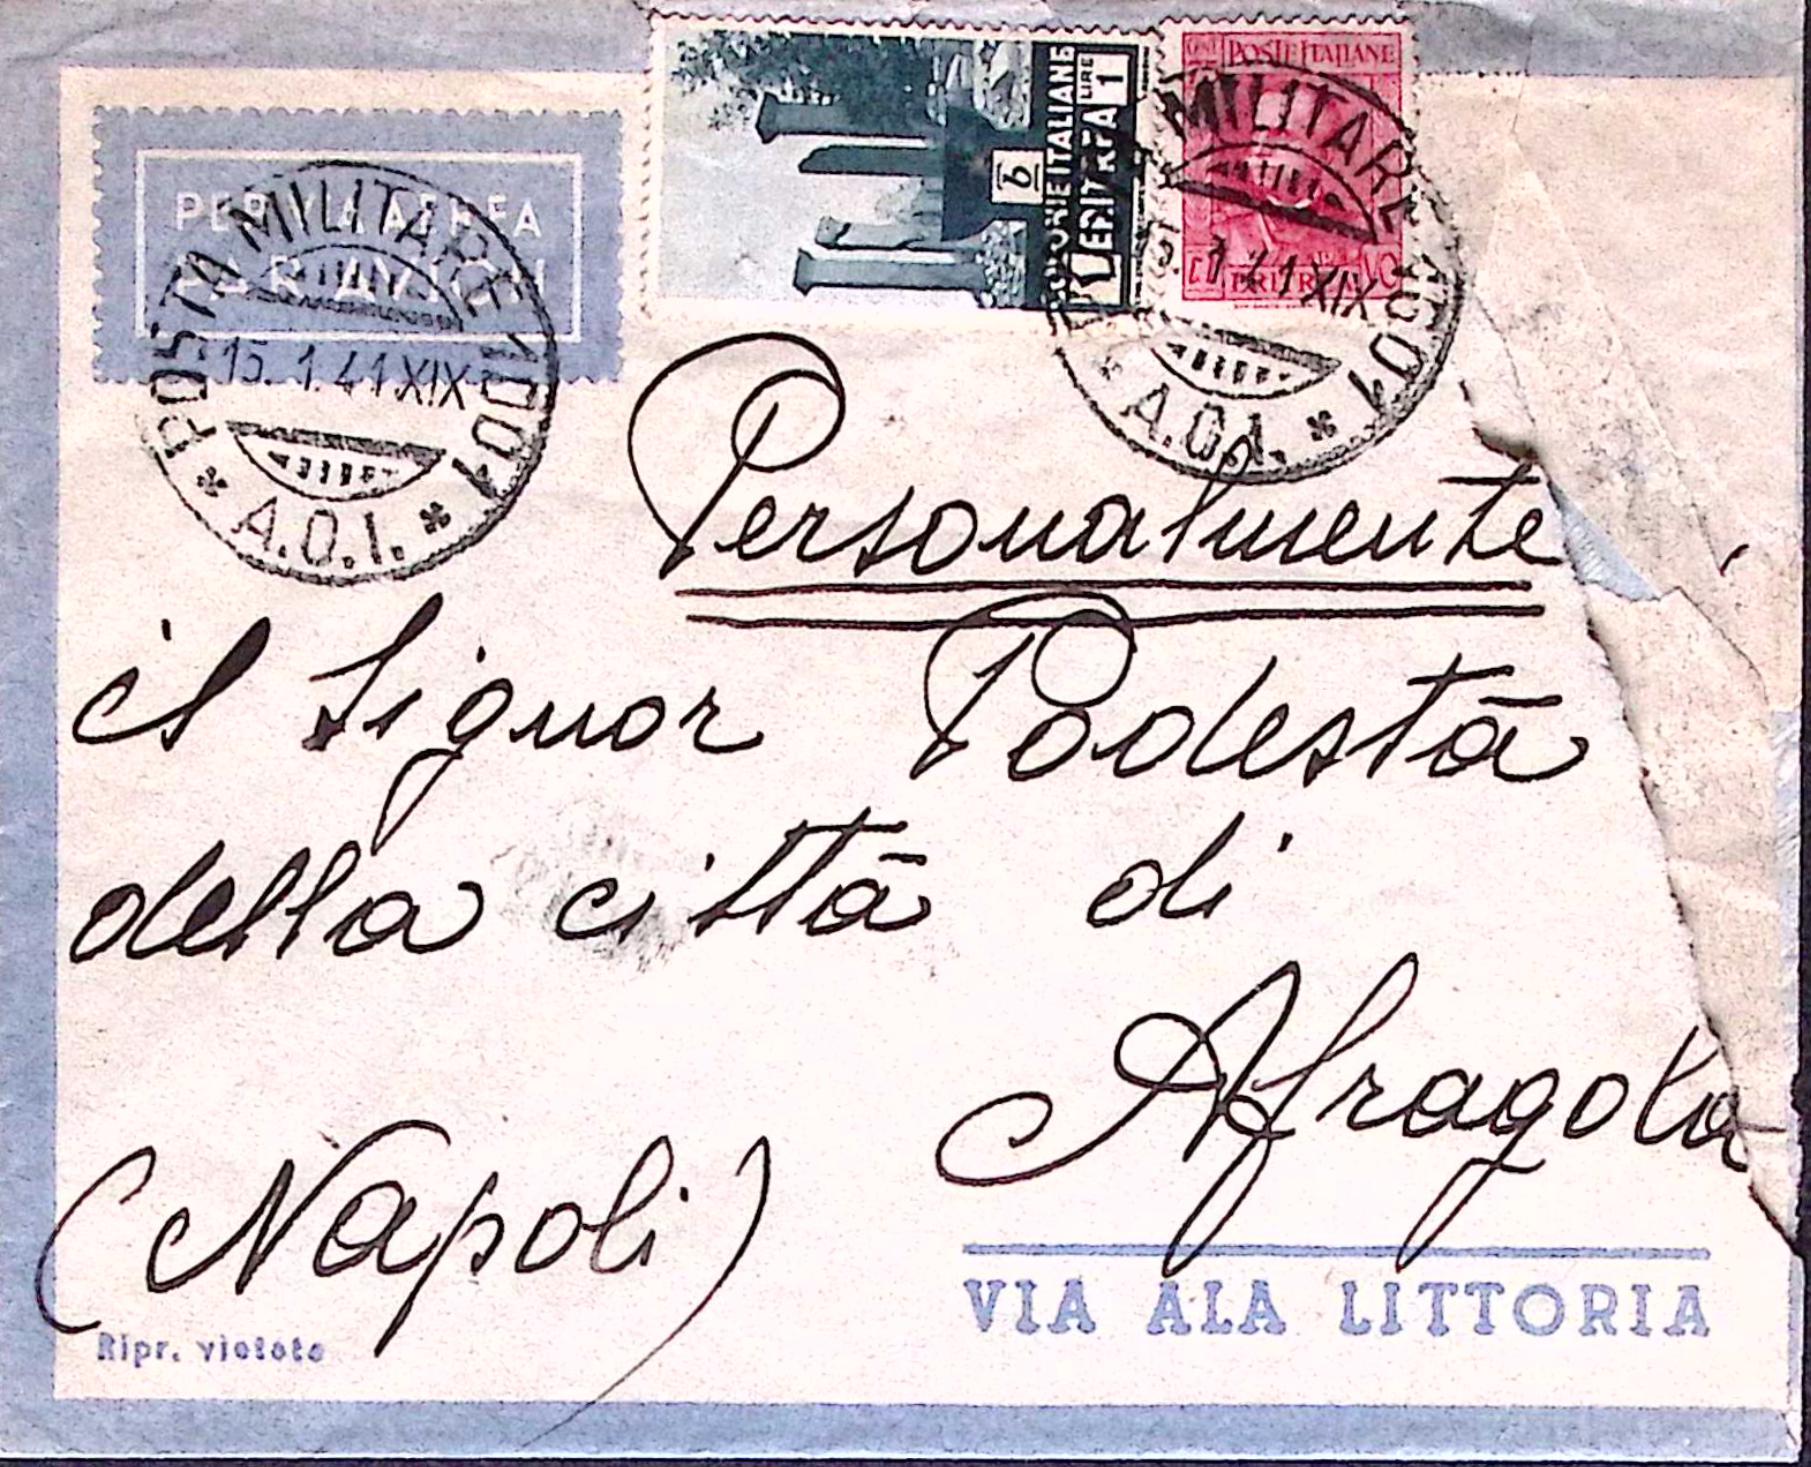 PER VIA AEREA
PAR AVION
POSTA MILITARE
15. 1.41 XIX
* A.O.I. *
POSTE ITALIANE
ERITREA
LIRE 1
b
MILITARE
1 41 XIX
* A.O.I. *
Personalmente
il Signor Podestà
della città di
Afragola
(Napoli)
VIA ALA LITTORIA
Ripr. vietata